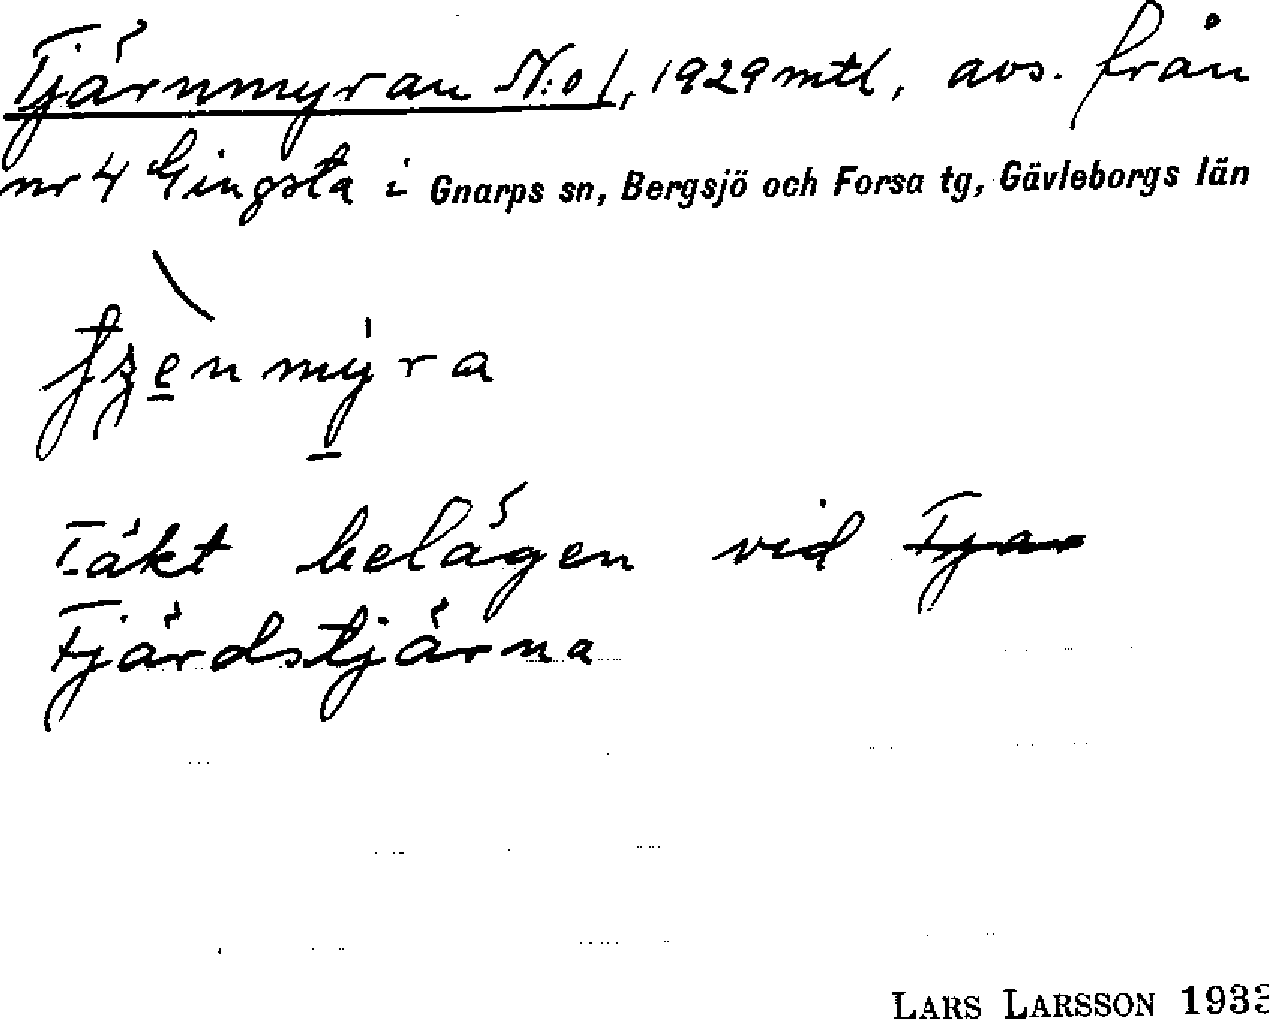 Tjärnmyran N:o 1, 1929 mtl, avs. från
nr 4 Gingsta i Gnarps sn, Bergsjö och Forsa tg, Gävleborgs län
Täkt belägen vid Tjar
Fjärdstjärna
LARS LARSSON 1933